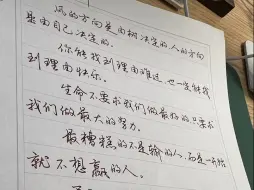 风的方向是由树决定的,人的方向
是由自己决定的.
你能找到理由难过,也一定能找
到理由快乐。
生命不要求我们做最好的,只要求
我们做最大的努力.
最糟糕的不是输的人,而是一开始
就不想赢的人。